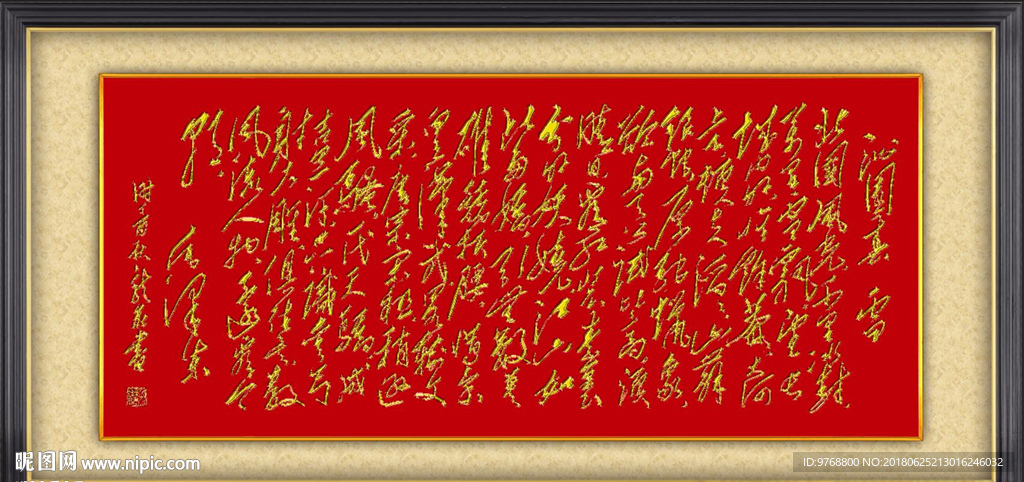 沁園春 雪
北國風光千里冰封
万里雪飄望长
城内外惟餘莽莽大河
上下顿失滔滔山舞
银蛇原驰蜡象
欲与天公试比高须
晴日看红装素裹
分外妖娆江山如
此多娇引無数英
雄竞折腰惜秦
皇漢武略输文
采唐宗宋祖稍逊
風骚一代天骄成
吉思汗只識弯弓
射大雕俱往矣数
風流人物还看今
朝
毛泽东
昵图网 www.nipic.com
ID:9768800 NO:20180625213016246032